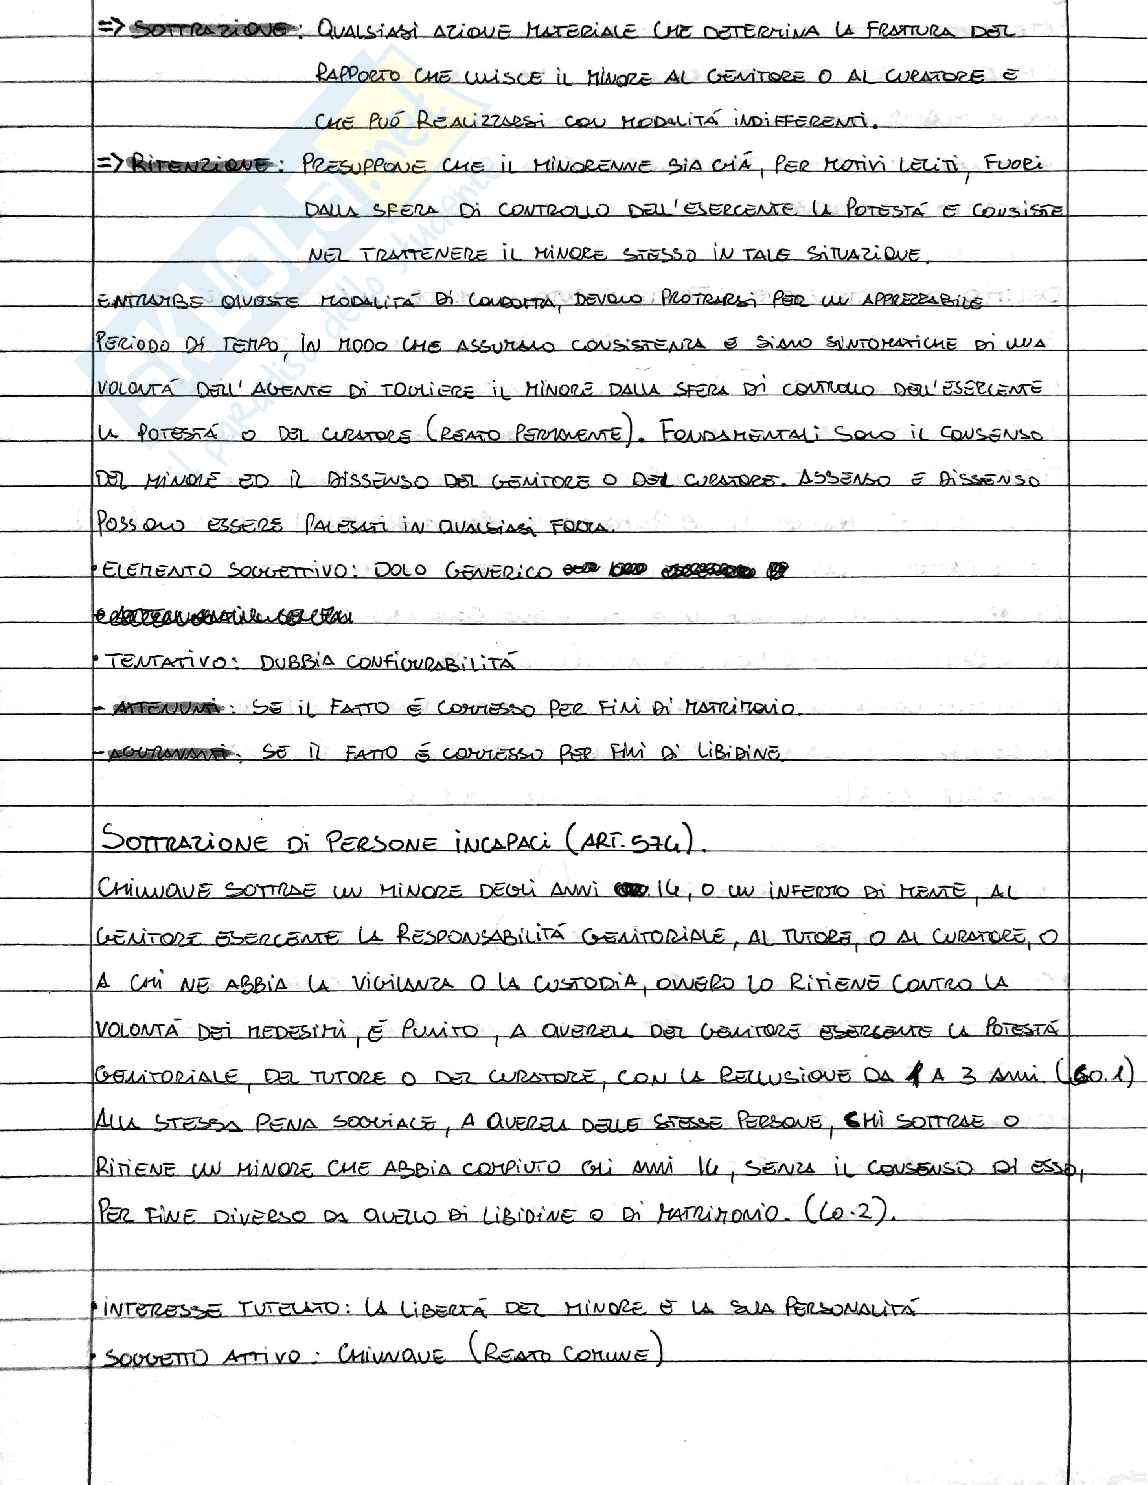 => SOTTRAZIONE: QUALSIASI AZIONE MATERIALE CHE DETERMINA LA FRATTURA DEL
RAPPORTO CHE UNISCE IL MINORE AL GENITORE O AL CURATORE E
CHE PUÓ REALIZZARSI CON MODALITÁ INDIFFERENTI.
=> RITENZIONE: PRESUPPONE CHE IL MINORENNE SIA GIÁ, PER MOTIVI LECITI, FUORI
DALLA SFERA DI CONTROLLO DELL'ESERCENTE LA POTESTÁ E CONSISTE
NEL TRATTENERE IL MINORE STESSO IN TALE SITUAZIONE.
ENTRAMBE QUESTE MODALITÁ DI CONDOTTA, DEVONO PROTRARSI PER UN APPREZZABILE
PERIODO DI TEMPO, IN MODO CHE ASSUMANO CONSISTENZA E SIANO SINTOMATICHE DI UNA
VOLONTÁ DELL'AGENTE DI TOGLIERE IL MINORE DALLA SFERA DI CONTROLLO DELL'ESERCENTE
LA POTESTÁ O DEL CURATORE (REATO PERMANENTE). FONDAMENTALI SONO IL CONSENSO
DEL MINORE ED IL DISSENSO DEL GENITORE O DEL CURATORE. ASSENSO E DISSENSO
POSSONO ESSERE PALESATI IN QUALSIASI FORMA.
• ELEMENTO SOGGETTIVO: DOLO GENERICO
• TENTATIVO: DUBBIA CONFIGURABILITÁ
- ATTENUANTI: SE IL FATTO É COMMESSO PER FINI DI MATRIMONIO.
- AGGRAVANTI: SE IL FATTO É COMMESSO PER FINI DI LIBIDINE.
SOTTRAZIONE DI PERSONE INCAPACI (ART. 574).
CHIUNQUE SOTTRAE UN MINORE DEGLI ANNI 14, O UN INFERMO DI MENTE, AL
GENITORE ESERCENTE LA RESPONSABILITÁ GENITORIALE, AL TUTORE, O AL CURATORE, O
A CHI NE ABBIA LA VIGILANZA O LA CUSTODIA, OVVERO LO RITIENE CONTRO LA
VOLONTÁ DEI MEDESIMI, É PUNITO, A QUERELA DEL GENITORE ESERCENTE LA POTESTÁ
GENITORIALE, DEL TUTORE O DEL CURATORE, CON LA RECLUSIONE DA 1 A 3 ANNI. (CO.1)
ALLA STESSA PENA SOGGIACE, A QUERELA DELLE STESSE PERSONE, CHI SOTTRAE O
RITIENE UN MINORE CHE ABBIA COMPIUTO GLI ANNI 14, SENZA IL CONSENSO DI ESSO,
PER FINE DIVERSO DA QUELLO DI LIBIDINE O DI MATRIMONIO. (CO.2).
• INTERESSE TUTELATO: LA LIBERTÁ DEL MINORE E LA SUA PERSONALITÁ
• SOGGETTO ATTIVO: CHIUNQUE (REATO COMUNE)
SKUOLA.net
il paradiso dello studente